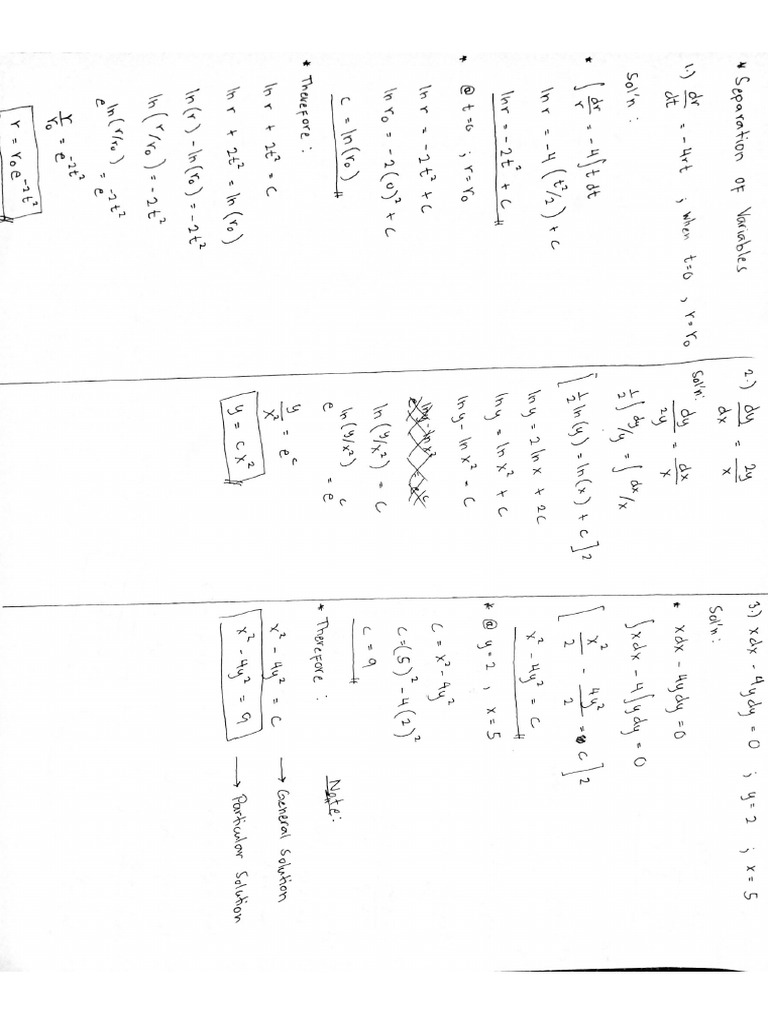 * Separation of Variables
1.) dr/dt = -4rt ; when t=0 , r=r₀
Sol'n :
* ∫ dr/r = -4 ∫ t dt
ln r = -4 (t²/2) + c
ln r = -2t² + c
* @ t=0 ; r=r₀
ln r = -2t² + c
ln r₀ = -2(0)² + c
c = ln(r₀)
* Therefore :
ln r + 2t² = c
ln r + 2t² = ln(r₀)
ln(r) - ln(r₀) = -2t²
ln(r/r₀) = -2t²
e^ln(r/r₀) = e^-2t²
r/r₀ = e^-2t²
r = r₀e^-2t²
2.) dy/dx = 2y/x
Sol'n:
dy/2y = dx/x
½ ∫ dy/y = ∫ dx/x
[ ½ ln(y) = ln(x) + c ] 2
ln y = 2 ln x + 2c
ln y = ln x² + c
ln y - ln x² = c
ln(y/x²) = c
e^ln(y/x²) = e^c
y/x² = e^c
y = cx²
3.) xdx - 4ydy = 0 ; y = 2 ; x = 5
Sol'n:
* xdx - 4ydy = 0
∫xdx - 4∫ydy = 0
[ x²/2 - 4y²/2 = c ] 2
x² - 4y² = c
* @ y=2 , x=5
c = x² - 4y²
c = (5)² - 4(2)²
c = 9
* Therefore : Note:
x² - 4y² = c → General Solution
x² - 4y² = 9 → Particular Solution